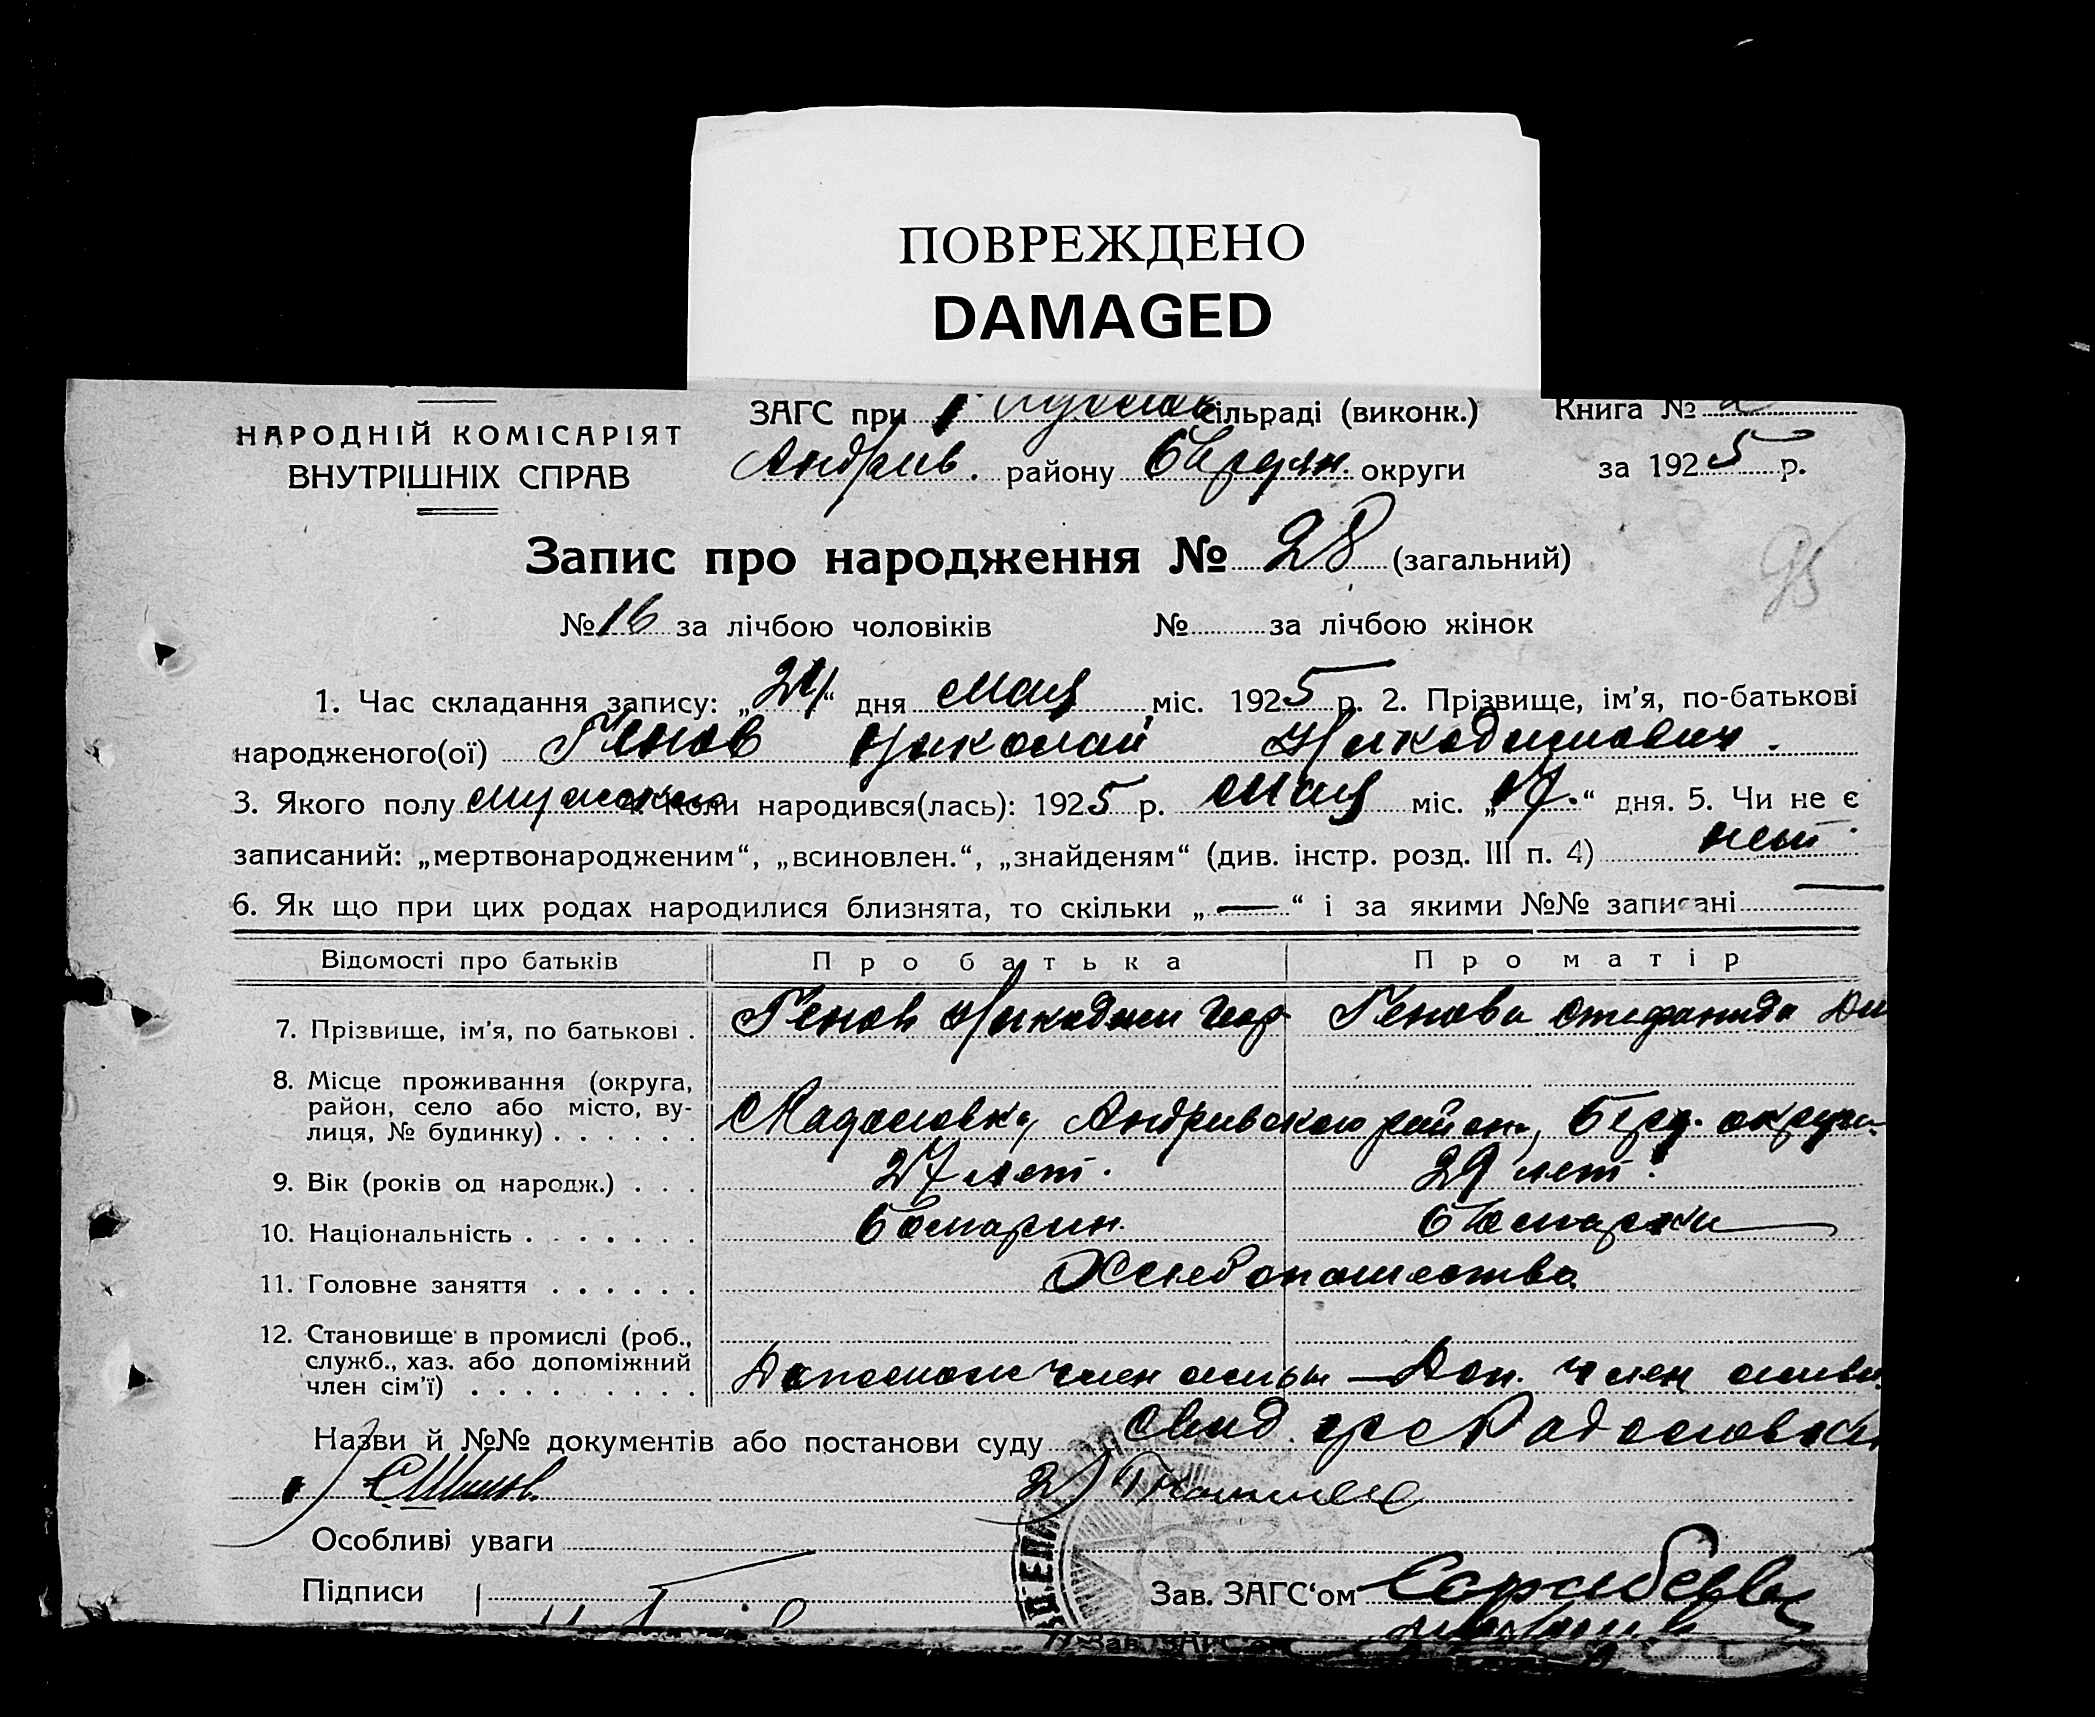 ПОВРЕЖДЕНО
DAMAGED
НАРОДНІЙ КОМІСАРІЯТ
ВНУТРІШНІХ СПРАВ
ЗАГС при сільраді (виконк.)
Андрив. району Бердян. округи
Книга № 2
за 1925 р.
Запис про народження № 28 (загальний)
95
№ 16 за лічбою чоловіків № за лічбою жінок
1. Час складання запису: „24“ дня мая міс. 1925 р. 2. Прізвище, ім'я, по-батькові
народженого(ої) Генов Николай Никодимович.
3. Якого полу мужского 4. Коли народився(лась): 1925 р. мая міс. „17.“ дня. 5. Чи не є
записаний: „мертвонародженим“, „всиновлен.“, „знайденям“ (див. інстр. розд. III п. 4) нет.
6. Як що при цих родах народилися близнята, то скільки „—“ і за якими №№ записані —
Відомості про батьків Про батька Про матір
7. Прізвище, ім'я, по батькові . Генов Никодим Геор Генова Стефанида Ди
8. Місце проживання (округа,
район, село або місто, ву-
лиця, № будинку) . . . . . . Андривского район, Берд. округи
9. Вік (років од народж.) . . . 27 лет. 29 лет.
10. Національність . . . . . . . болгарин. болгарки
11. Головне заняття . . . . . . Хлебопашество
12. Становище в промислі (роб.,
служб., хаз. або допоміжний
член сім'ї) . . . . . . . . . Допомож член семьи — Доп. член семьи
Назви й №№ документів або постанови суду
1) 2)
Особливі уваги
Підписи Зав. ЗАГС'ом